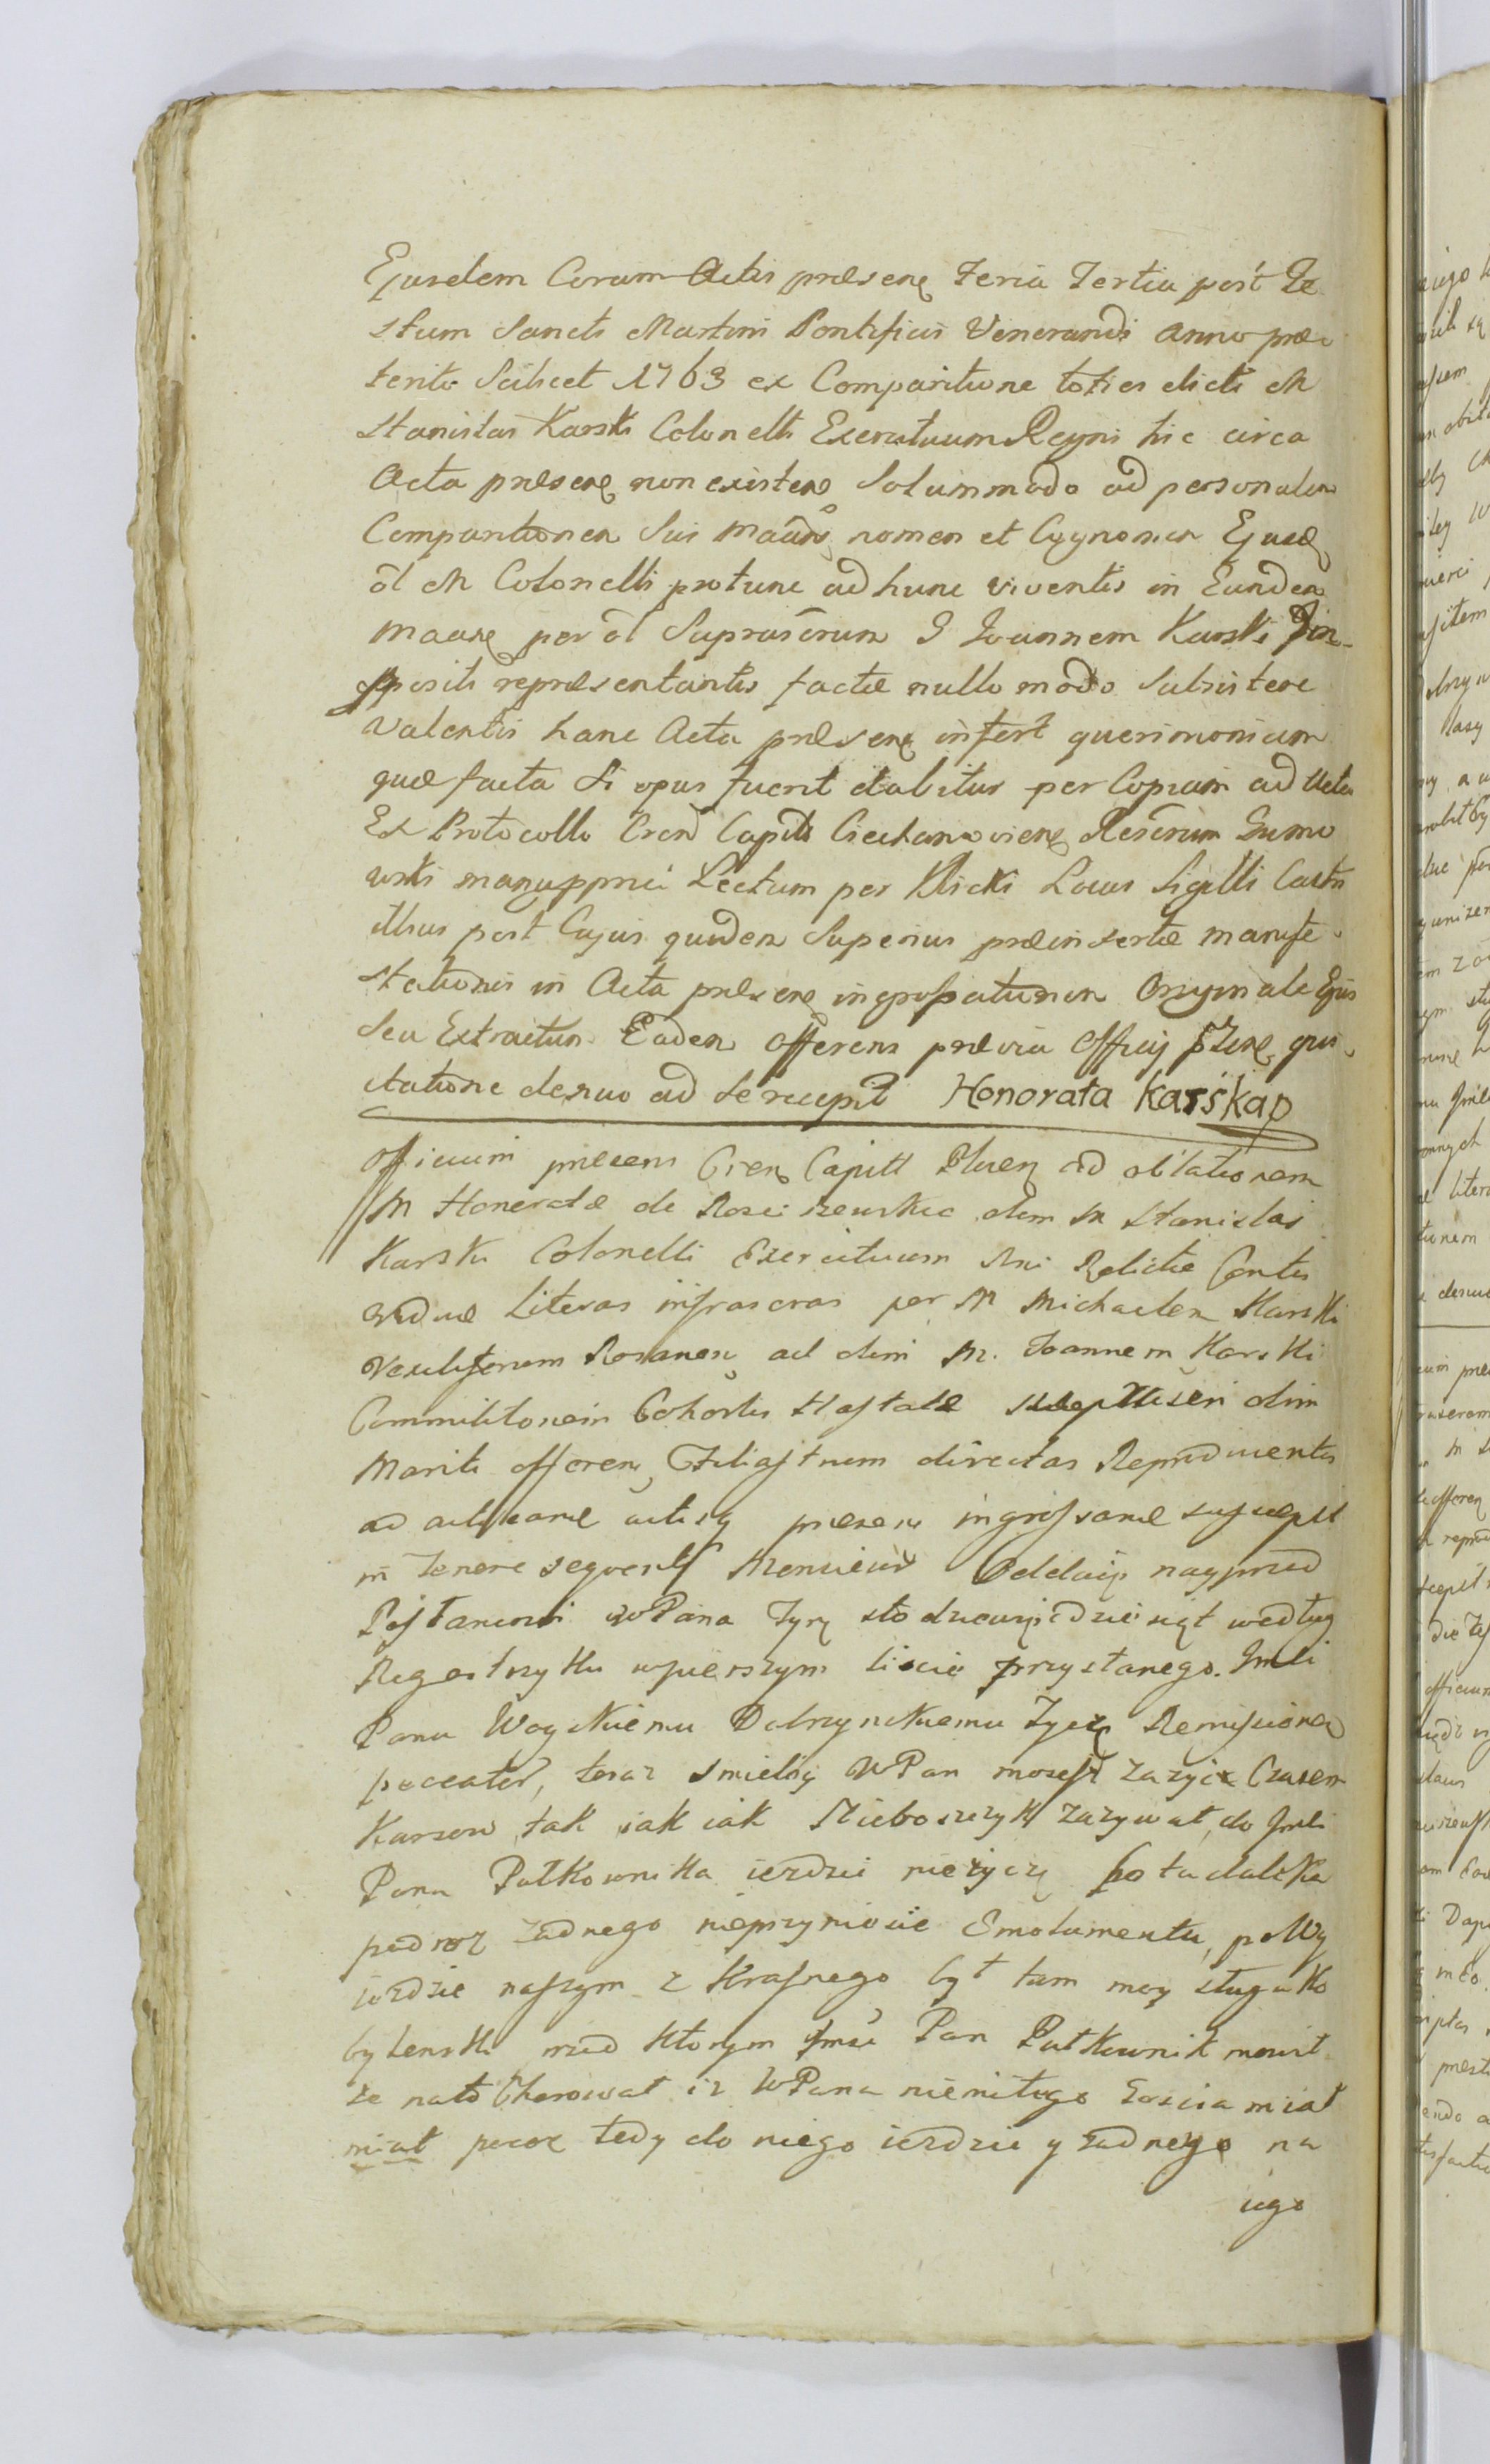 Ejusdem Coram Actis præsenę Feria Tertia post Fe
stum Sancti Martini Pontificis Venerandi Anno præ
terito Scilicet 1763 ex Comparitione toties dicti M
Stanislai Karski Colonelli Exercituum Regni hic circa
Acta præsenę non existenę Solummodo ad personalem
Comparitionem Sui nomen et Cognomen Ejusdę
ol M Colonelli protunc adhunc viventis in Eundem
per ol Suprascrum G Joannem Karski Im-
positi repræsentantis factæ nullo modo Subsistere
Valentis hanc Acta præsenę infert querimoniam
quæ facta Si opus fuerit dabitur per Copiam ad Acta
Ex Protocollo Crend Capitli Ciechanoviene Rescrum Sumo
wski manuppria Lectum per Klicki Locus Sigilli Castri
illius post Cujus quidem Superius præinsertæ manife
stationis in Acta præsenę ingrossationem Originale Ejus
Seu Extractum Eadem offerens prævia Officij pzenę qui
etatione denuo ad Se recepit Honorata Karska p
Officium præsens Crenę Capitl ad oblationem
M Honoratæ de Rosciszewskie olim M Stanislai
Karski Colonelli Exercituum Rni Relictæ Contis
viduæ Literas infrascras per M Michaelem Karski
Vexiliferum Rosanenę ad olim M. Joannem Karski
Commilitonem Cohortis Hastatæ olim
Mariti offerenę Filiastrum directas Reproducentis
ad acticand actisq præsenę ingrossand suscepit
in Tenore sequenti Monsieur Oddaię nayprzod
Posłancowi WPana Tyn sto dziewiędziesiąt według
Regestrzyku wpierszym liscie przysłanego. Jmci
Panu Woyskiemu Dobrzynskiemu życzę Remissionem
peccator, teraz smieley WPan mozesz zazyic Czasem
Karsow tak iak iak Nieboszczyk zazywał, do Jmci
Pana Pułkownika iezdzic nieżyczę bo ta daleka
podroz zadnego nieprzyniosie Emolumentu, po Wy
iezdzie naszym z Krasnego był tam moy sługa Ko
bylenski przed ktorym Jmsc Pan Pułkownik mowił
ze nato Chorował iz WPana niemiłego Goscia miał
miał pocoz tedy do niego iezdzic y zadnego na
iego